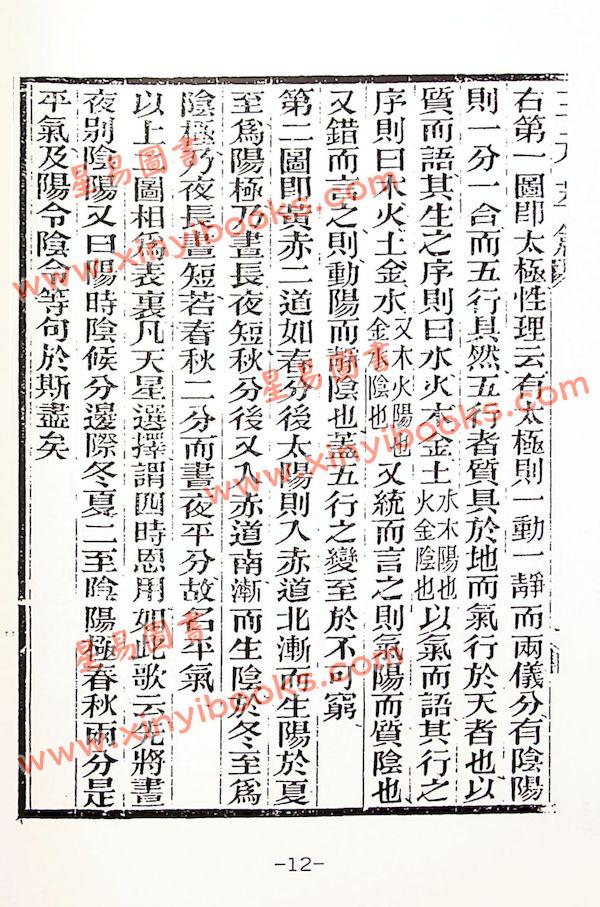 右第一圖即太極性理云有太極則一動一靜而兩儀分有陰陽
則一分一合而五行具然五行者質具於地而氣行於天者也以
質而語其生之序則曰水火木金土水木陽也火金陰也以氣而語其行之
序則曰木火土金水又木火陽也金水陰也又統而言之則氣陽而質陰也
又錯而言之則動陽而靜陰也蓋五行之變至於不可窮
第二圖即黃赤二道如春分後太陽則入赤道北漸而生陽於夏
至爲陽極乃晝長夜短秋分後又入赤道南漸而生陰於冬至爲
陰極乃夜長晝短若春秋二分而晝夜平分故名平氣
以上二圖相爲表裏凡天星選擇謂四時恩用如此歌云先將晝
夜別陰陽又曰陽時陰候分邊際冬夏二至陰陽極春秋兩分是
平氣及陽令陰令等句於斯盡矣
-12-
星易圖書
www.xinyibooks.com
星易圖書
www.xinyibooks.com
星易圖書
www.xinyibooks.com
星易圖書
www.xinyibooks.com